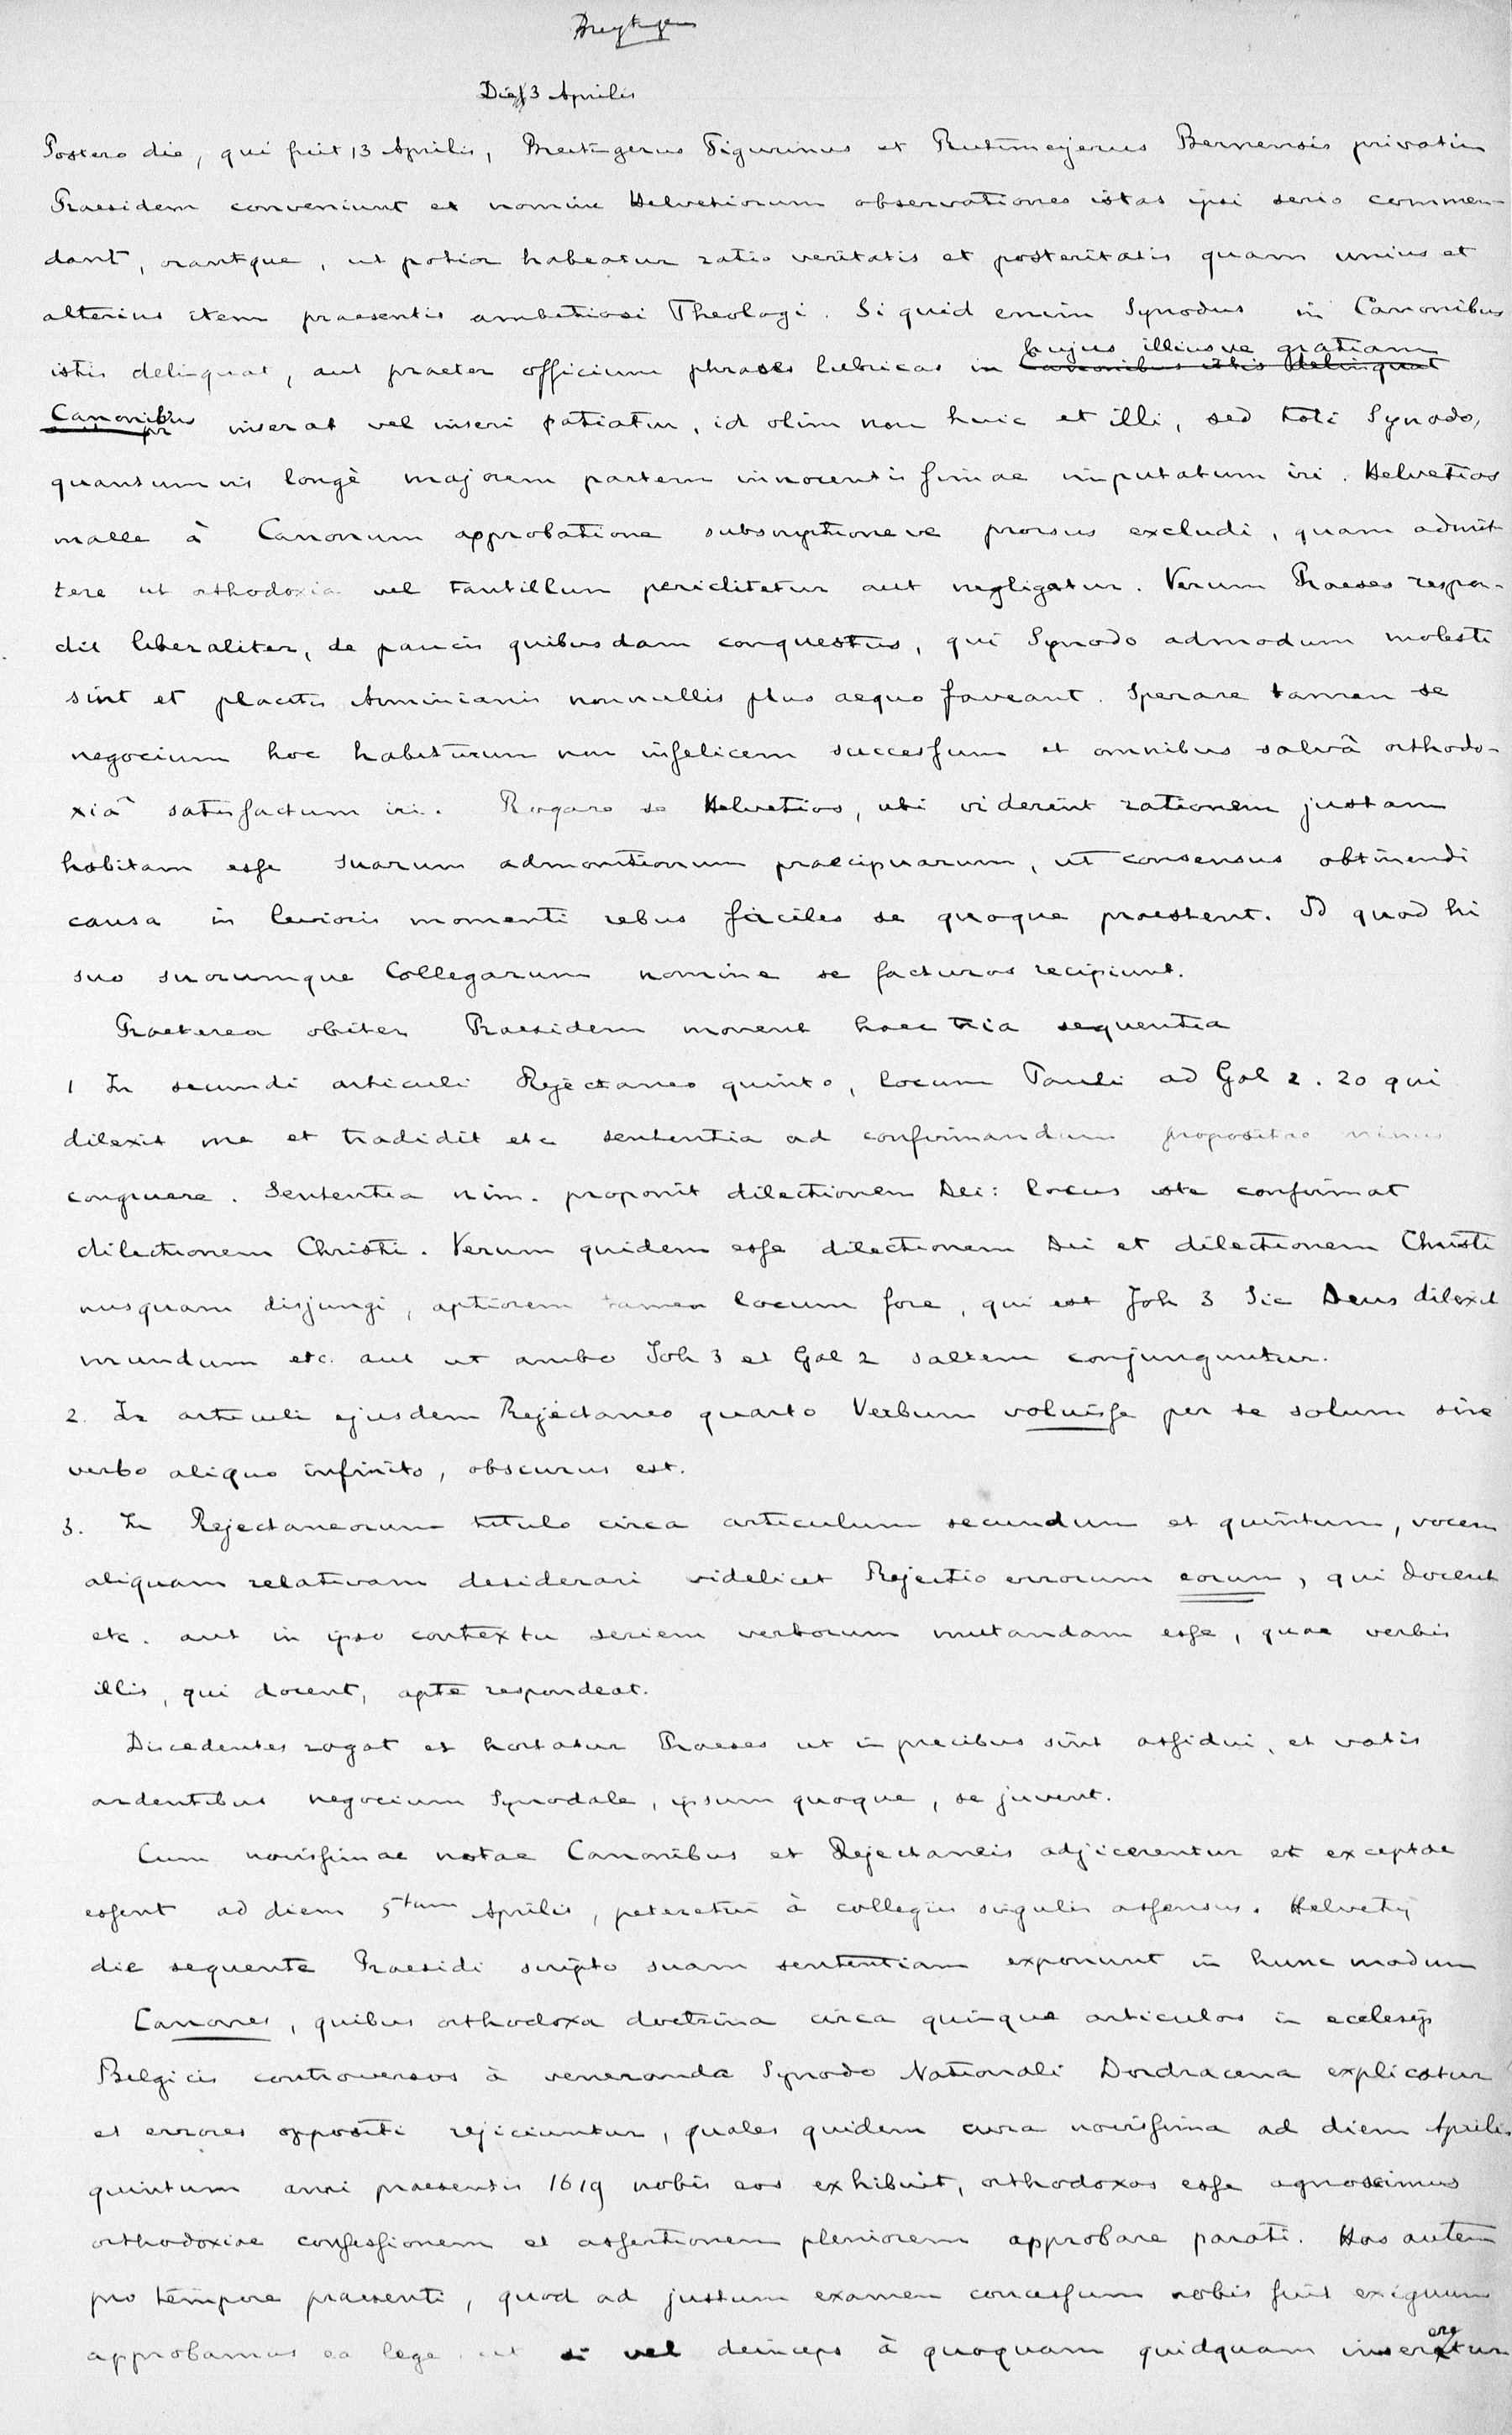 Die 13 Aprilis
Postero die, qui fuit 13 Aprilis, Breitingerus Tigurinus et Rutimeyerus Bernensis privatim
Praesidem conveniunt et nomine Helvetiorum observationes istas ipsi serio commen-
dant, orantque, ut potior habeatur ratio veritatis et posteritatis quam unius et
alterius item praesentis ambitiosi Theologi. Si quid enim Synodus in Canonibus
hujus illiusve gratiam
istis delinquat, aut praeter officium phrases lubricas in Canonibus istis delinquat
Canonibus inserat vel inseri patiatur, id olim non huic et illi, sed toti Synodo,
quantumvis longè majorem partem innocentissimae imputatum iri. Helvetios
malle à Canonum approbatione subscriptioneve prorsus excludi, quam admit
tere ut orthodoxia vel tantillum periclitetur aut negligatur. Verum Praeses respon-
dit liberaliter, de paucis quibusdam conquestus, qui Synodo admodum molesti
sint et placitis Arminianis nonnullis plus aequo faveant. Sperare tamen se
negocium hoc habiturum non infelicem successum et omnibus salvâ orthodo-
xiâ satisfactum iri. Rogare se Helvetios, ubi viderint rationem justam
habitam esse suarum admonitionum praecipuarum, ut consensus obtinendi
causa in levioris momenti rebus faciles se quoque praestent. Id quod hi
suo suorumque Collegarum nomine se facturos recipiunt.
Praeterea obiter Praesidem monent haec tria sequentia
1 In secundi articuli Rejectaneo quinto, locum Pauli ad Gal 2. 20 qui
dilexit me et tradidit etc sententia ad confirmandum propositae minus
congruere. Sententia nim. proponit dilectionem Dei: locus iste confirmat
dilectionem Christi. Verum quidem esse dilectionem Dei et dilectionem Christi
nusquam disjungi, aptiorem tamen locum fore, qui est Joh 3 Sic Deus dilexit
mundum etc. aut ut ambo Joh 3 et Gal 2 saltem conjunguntur.
2. In articuli ejusdem Rejectaneo quarto Verbum voluisse per se solum sine
verbo aliquo infinito, obscurus est.
3. In Rejectaneorum titulo circa articulum secundum et quintum, vocem
aliquam relativam desiderari videlicet Rejectio errorum eorum, qui docent
etc. aut in ipso contextu seriem verborum mutandam esse, quae verbis
illis, qui docent, aptè respondeat.
Discedentes rogat et hortatur Praeses ut in precibus sint assidui, et votis
ardentibus negocium Synodale, ipsum quoque, se juvent.
Cum novissimae notae Canonibus et Rejectaneis adjicerentur et exceptae
essent ad diem 5tam Aprilis, peteretur à collegiis singulis assensus. Helvetij
die sequente Praesidi scripto suam sententiam exponunt in hunc modum
Canones, quibus orthodoxa doctrina circa quinque articulos in ecclesijs
Belgicis controversos à veneranda Synodo Nationali Dordracena explicatur
et errores oppositi rejiciuntur, quales quidem cura novissima ad diem Aprilis
quintum anni praesentis 1619 nobis eos exhibuit, orthodoxos esse agnoscimus
orthodoxiae confessionem et assertionem pleniorem approbare parati. Hos autem
pro tempore praesenti, quod ad justum examen concessum nobis fuit exiguum
approbamus ea lege ut si vel deinceps à quoquam quidquam insereretur